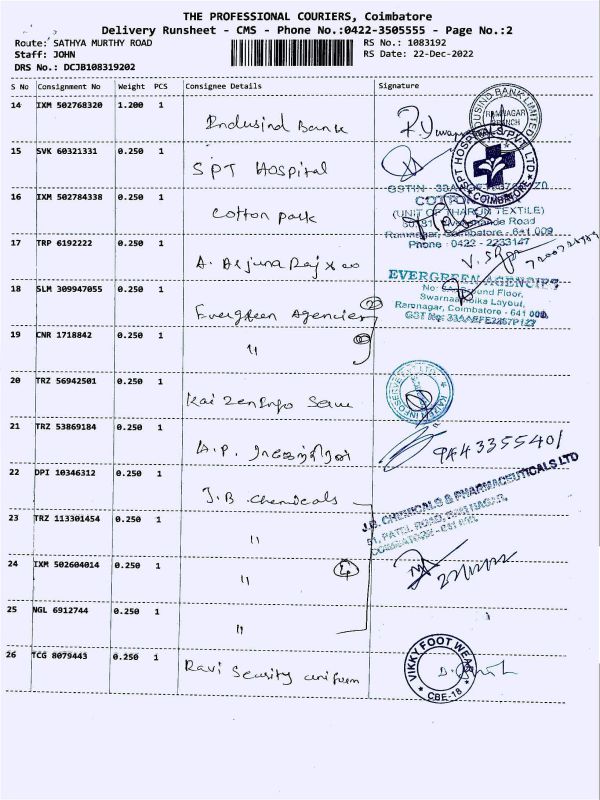 THE PROFESSIONAL COURIERS, Coimbatore
Delivery Runsheet - CMS - Phone No.:0422-3505555 - Page No.:2
Route: SATHYA MURTHY ROAD RS No.: 1083192
Staff: JOHN RS Date: 22-Dec-2022
DRS No.: DCJB108319202
S No Consignment No Weight PCS Consignee Details Signature
14 IXM 502768320 1.200 1 Indusind Bank
INDUSIND BANK LIMITED
RAMNAGAR
BRANCH
15 SVK 60321331 0.250 1 SPT Hospital
SPT HOSPITALS PVT LTD
COIMBATORE
16 IXM 502784338 0.250 1 Cotton park
(UNIT OF THARUN TEXTILE)
Ramnagar, Coimbatore - 641 009
Phone : 0422 - 2233147
17 TRP 6192222 0.250 1 A. Arjuna Raj
18 SLM 309947055 0.250 1 Evergreen Agencies
EVERGREEN AGENCIES
Swarnaambika Layout,
Ramnagar, Coimbatore - 641 009.
19 CNR 1718842 0.250 1 "
20 TRZ 56942501 0.250 1 Kaizen Info Serve
21 TRZ 53869184 0.250 1 A.P.
9A43355401
22 DPI 10346312 0.250 1 J.B Chemicals
J.B. CHEMICALS & PHARMACEUTICALS LTD
23 TRZ 113301454 0.250 1 "
24 IXM 502604014 0.250 1 " 4
22/12/22
25 NGL 6912744 0.250 1 "
26 TCG 8079443 0.250 1 Ravi Security uniform
VIKKY FOOT WEAR
CBE-18